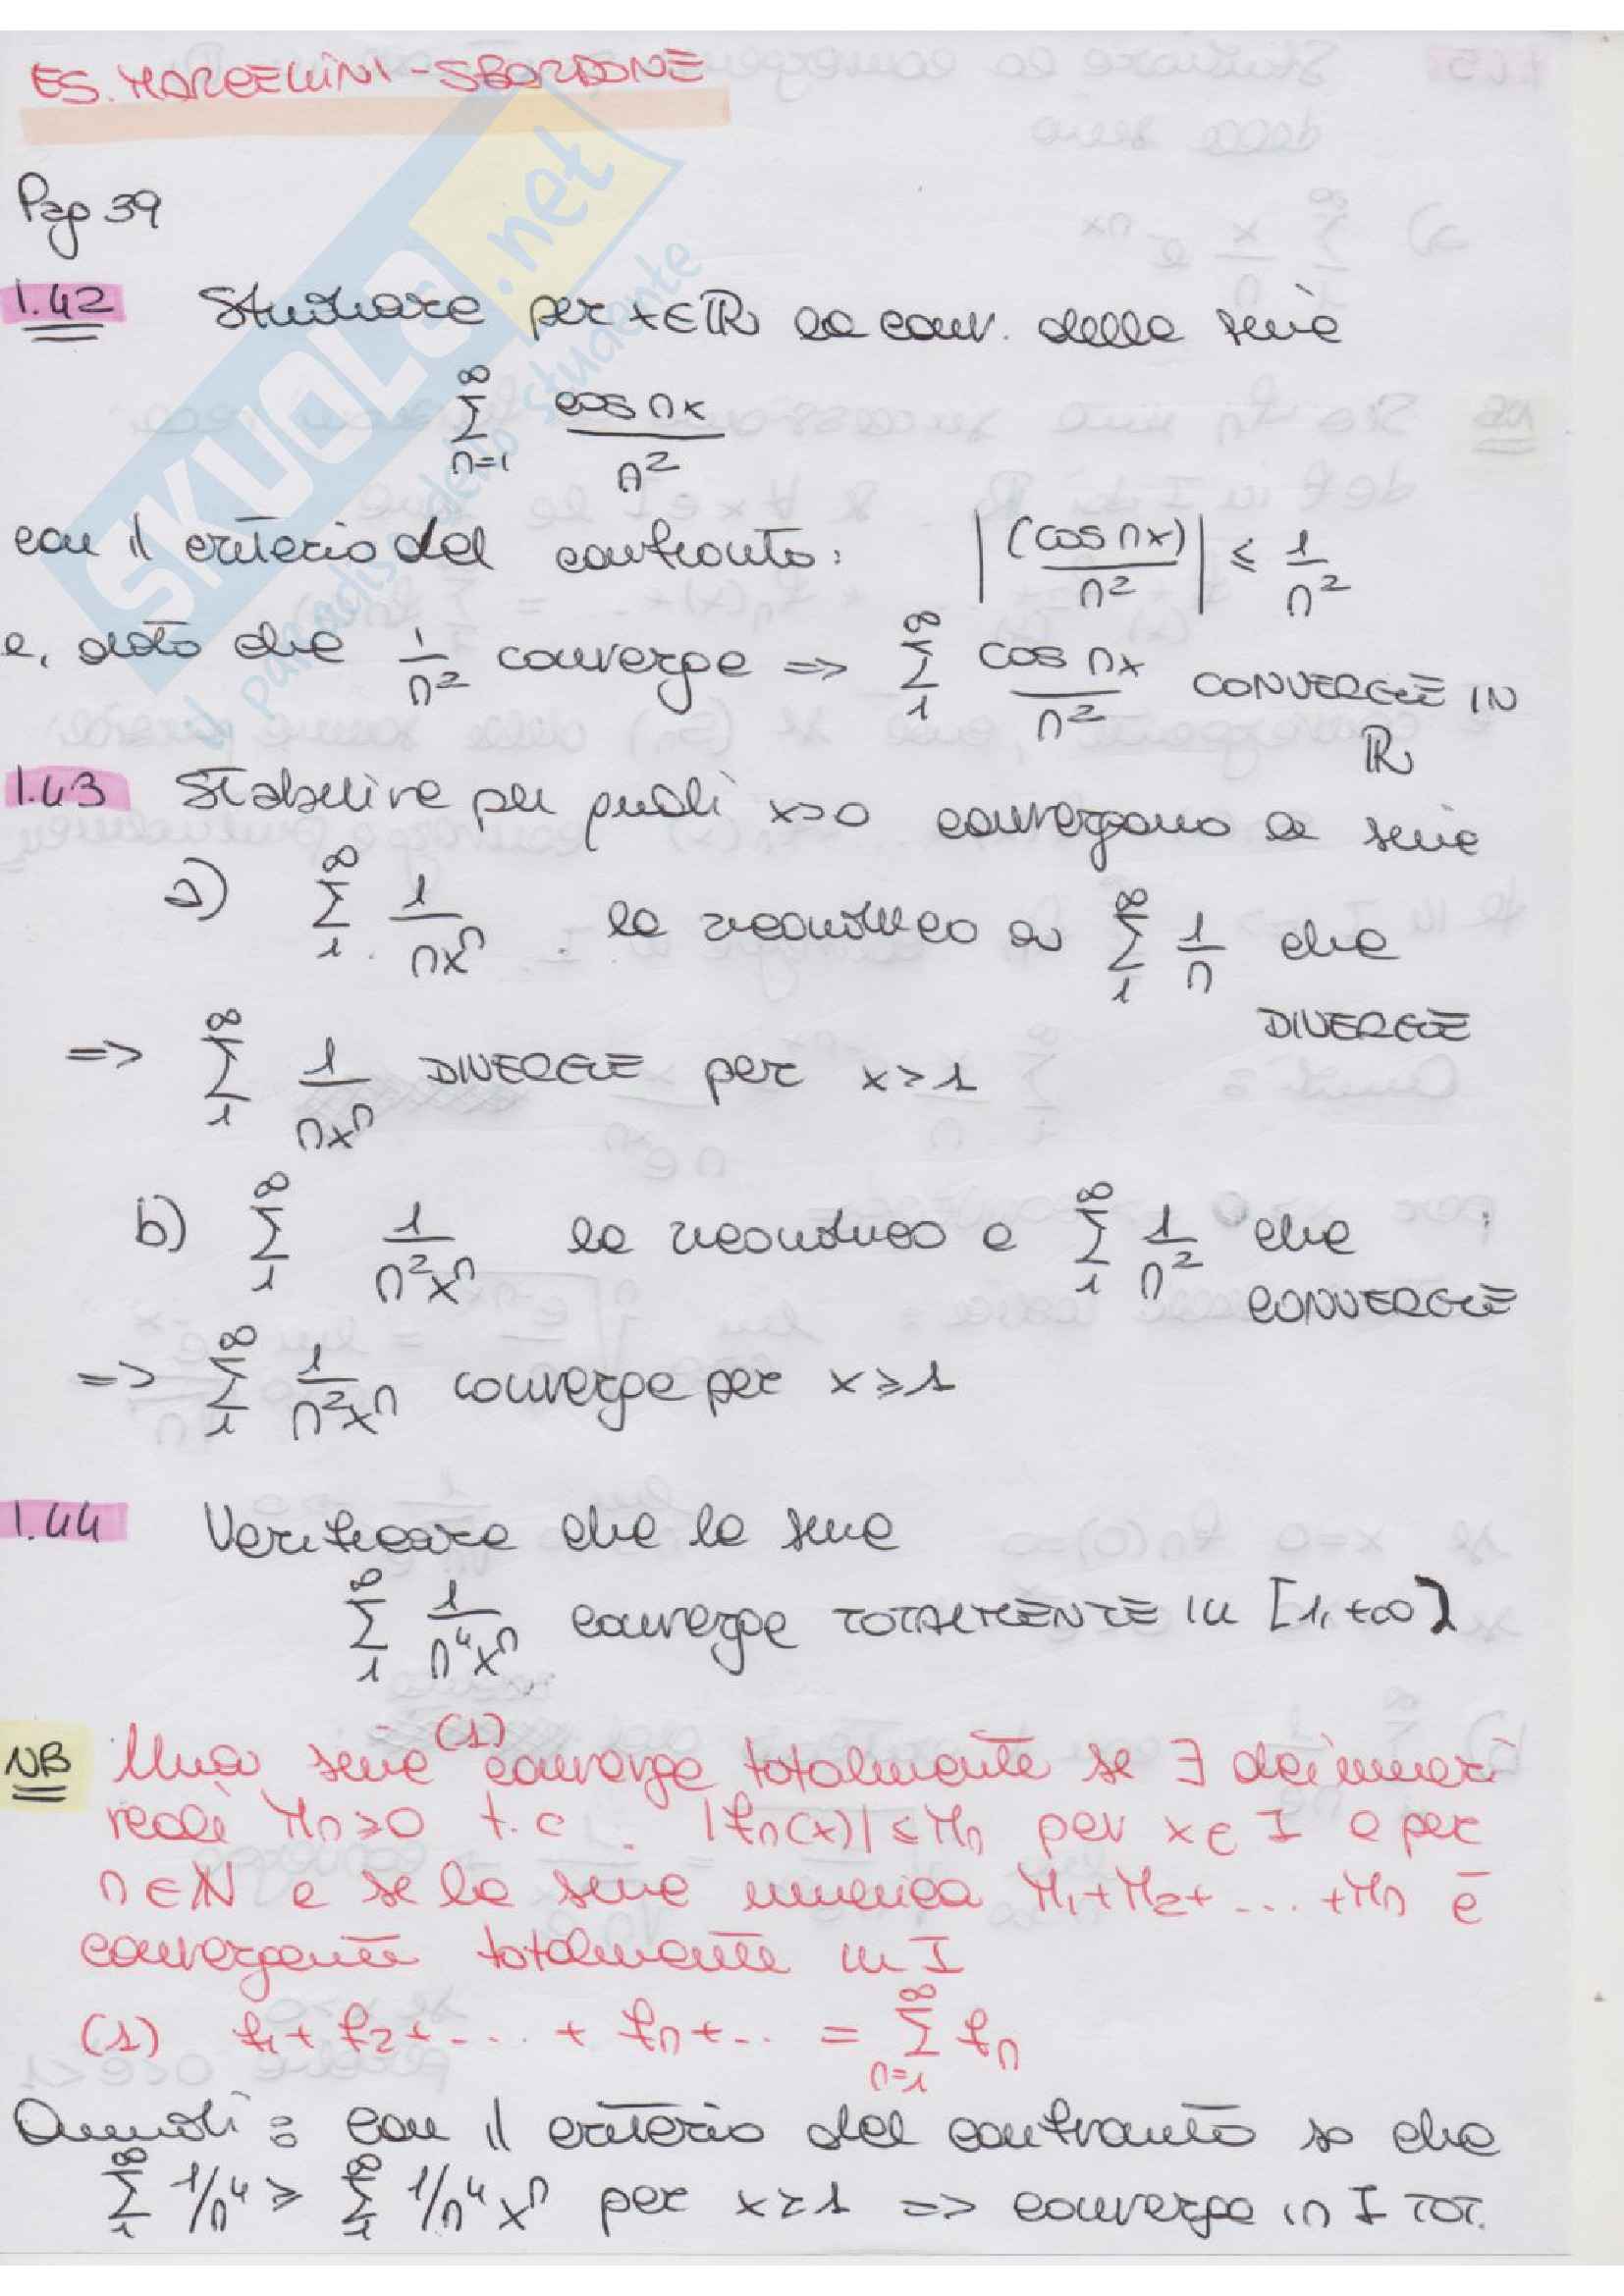 ES. MARCELLINI - SBORDONE
Pag 39
1.42 Studiare per x∈ℝ la conv. della serie
∞ Σ n=1 cos nx / n²
con il criterio del confronto: |(cos nx) / n²| ≤ 1 / n²
e, dato che 1/n² converge => ∞ Σ 1 cos nx / n² CONVERGE IN ℝ
1.43 Stabilire per quali x>0 convergono le serie
a) ∞ Σ 1 1 / nxⁿ . la riconduco a ∞ Σ 1 1/n che
DIVERGE
=> ∞ Σ 1 1 / nxⁿ DIVERGE per x>1
b) ∞ Σ 1 1 / n²xⁿ la riconduco a ∞ Σ 1 1/n² che
CONVERGE
=> ∞ Σ 1 1 / n²xⁿ converge per x≥1
1.44 Verificare che la serie
∞ Σ 1 1 / n⁴xⁿ converge TOTALMENTE in [1, +∞)
NB Una serie (1) converge totalmente se ∃ dei numeri
reali Mn≥0 t.c. |fn(x)| ≤ Mn per x∈I e per
n∈ℕ e se la serie numerica M1+M2+...+Mn è
convergente totalmente in I
(1) f1+f2+....+fn+... = ∞ Σ n=1 fn
Quindi: con il criterio del confronto so che
∞ Σ 1 1/n⁴ ≥ ∞ Σ 1 1/n⁴xⁿ per x≥1 => converge in I TOT.
SKUOLA.net
il paradiso dello studente